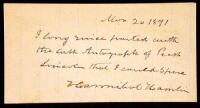 Nov 20 1891
I long since parted with
the last Autograph of Prest
Lincoln that I could spare
Hannibal Hamlin